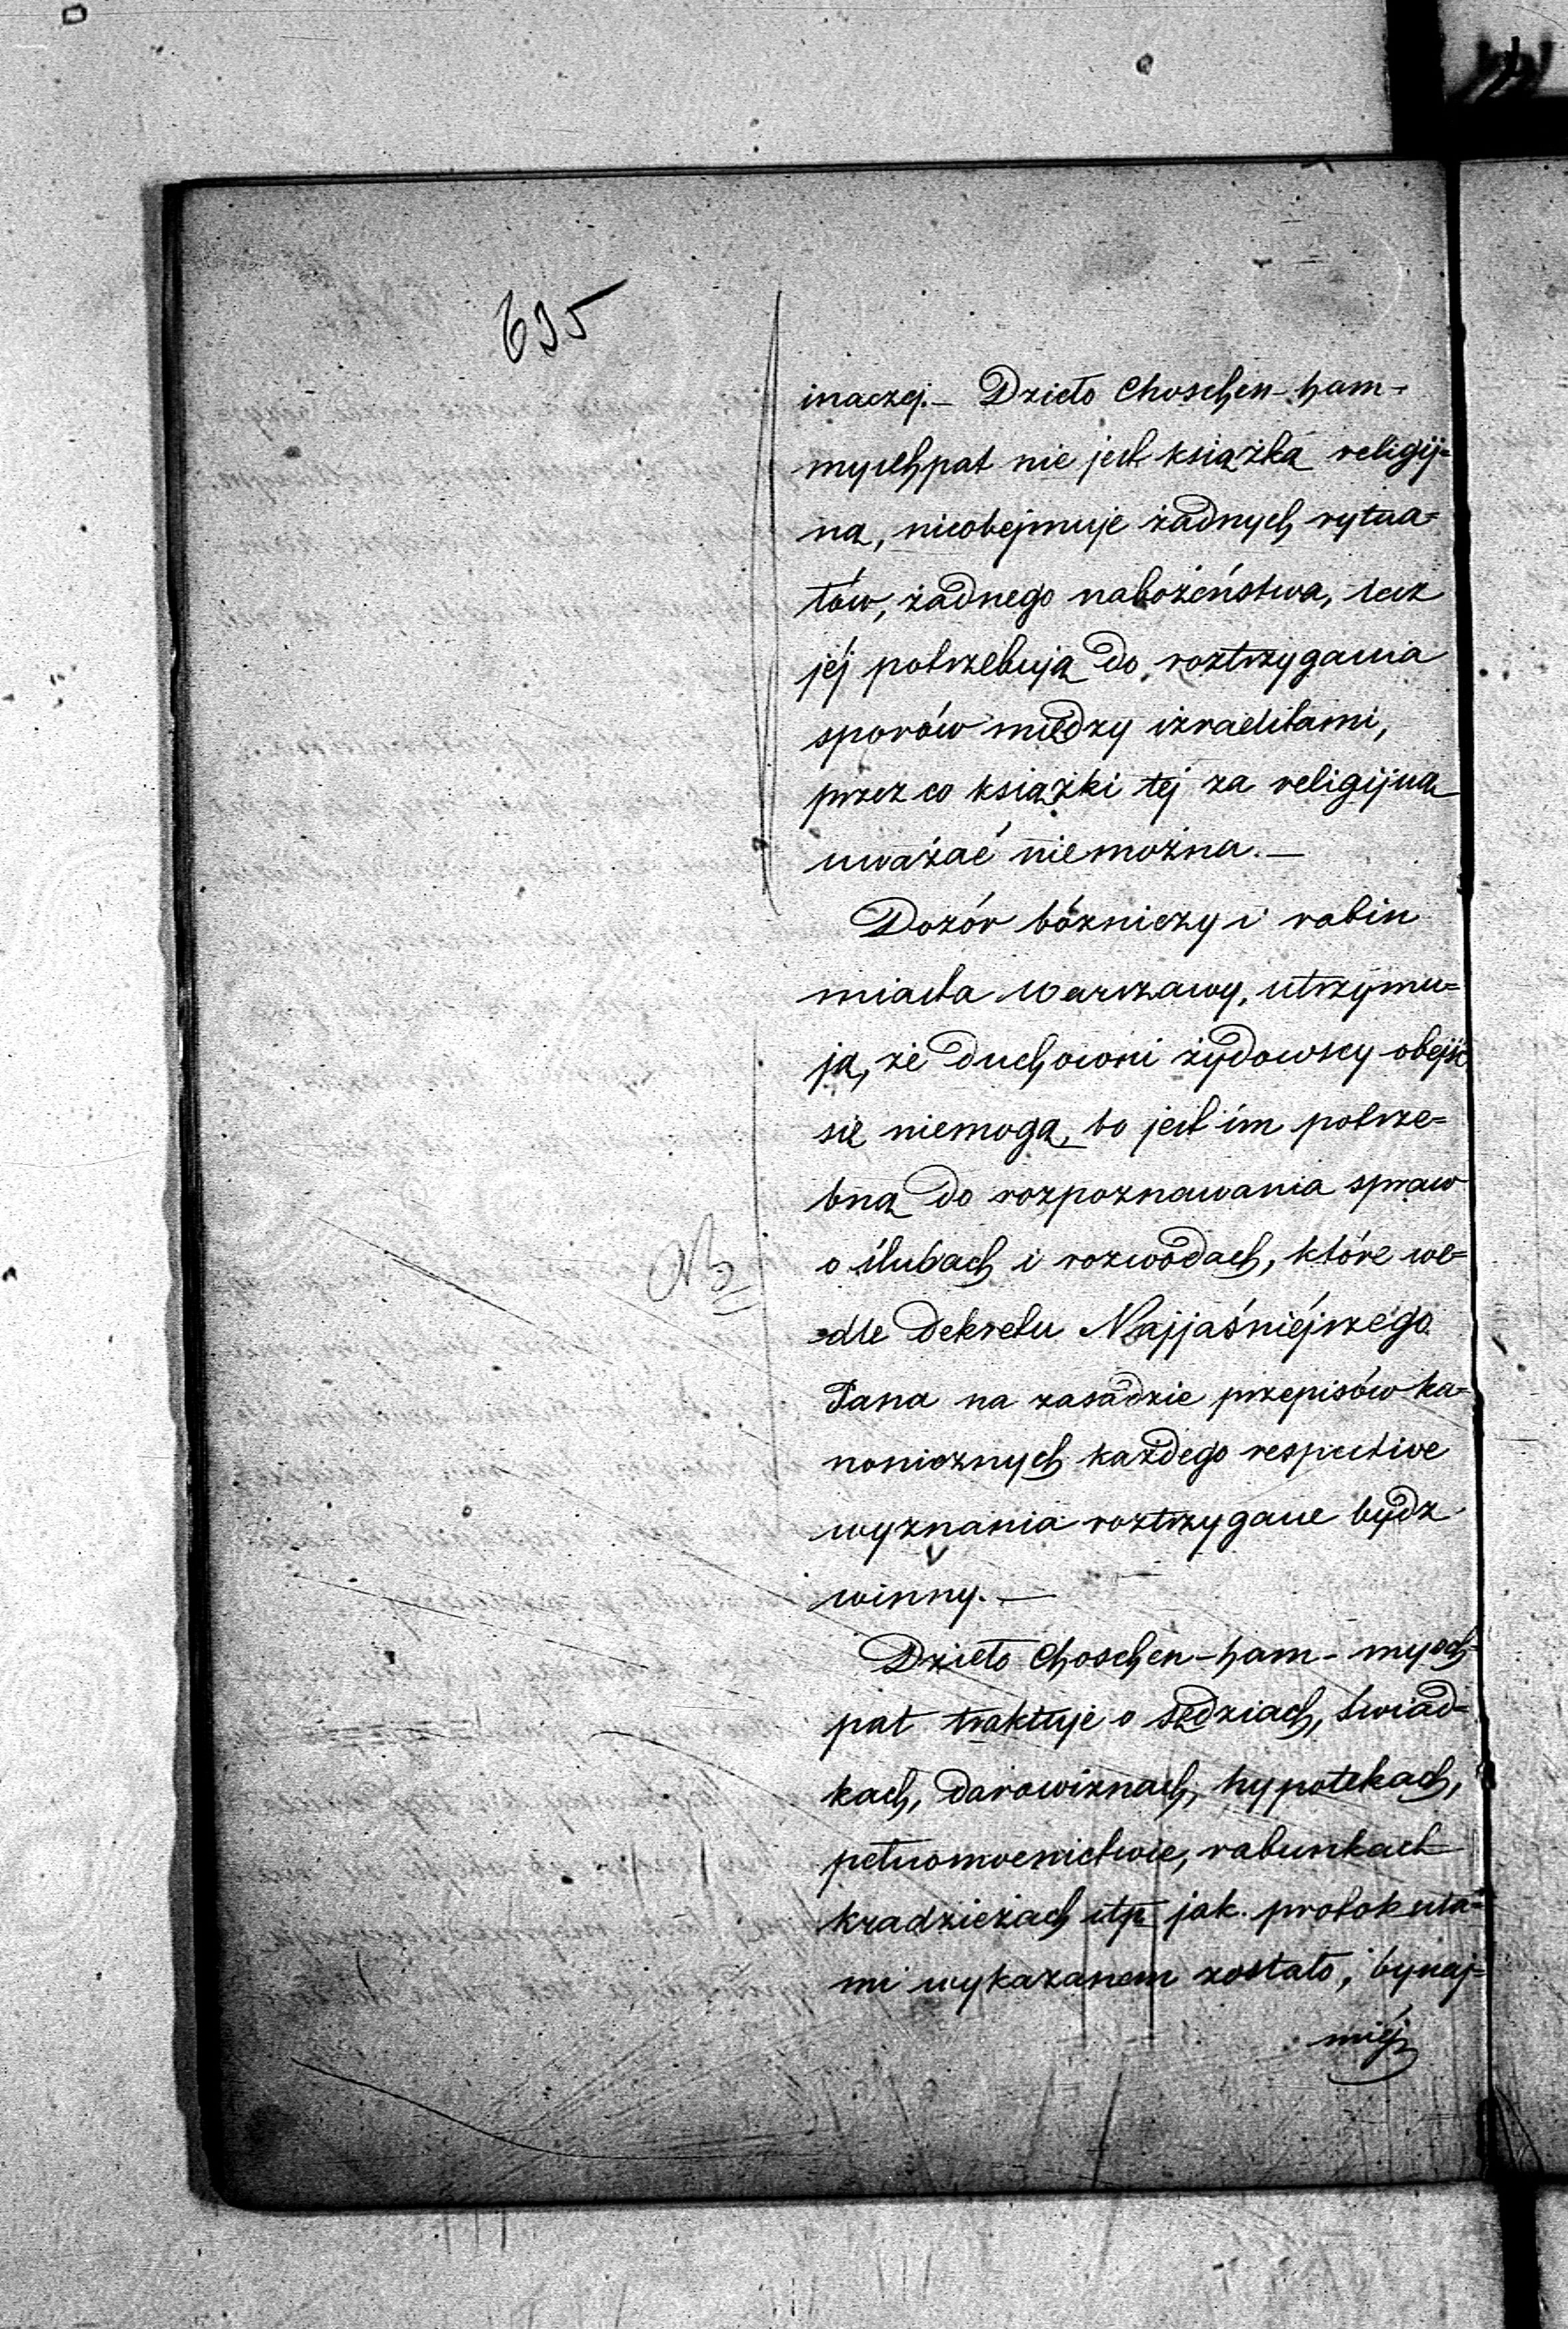 635
inaczej.— Dzieło Choschen-ham-
myschpat nie jest książką religij=
ną, nieobejmuje żadnych rytua=
łów, żadnego nabożeństwa, lecz
jéj potrzebują do roztrzygania
sporów między izraelitami,
przez co książki téj za religijną
uważać niemożna.—
Dozór bóżniczy i rabin
miasta Warszawy, utrzymu=
ją, że duchowni żydowscy obejść
się niemogą, bo jest im potrze=
bną do rozpoznawania spraw
o ślubach i rozwodach, które we=
dle Dekretu Najjaśniéjszego
Pana na zasadzie przepisów ka=
nonicznych każdego respective
wyznania roztrzygane bydź
winny.—
Dzieło Choschen-ham-mysch=
pat traktuje o Sędziach, świad=
kach, darowiznach, hypotekach,
pełnomocnictwie, rabunkach
kradzieżach itp jak protokuła=
mi wykazanem zostało, bynaj=
miéj